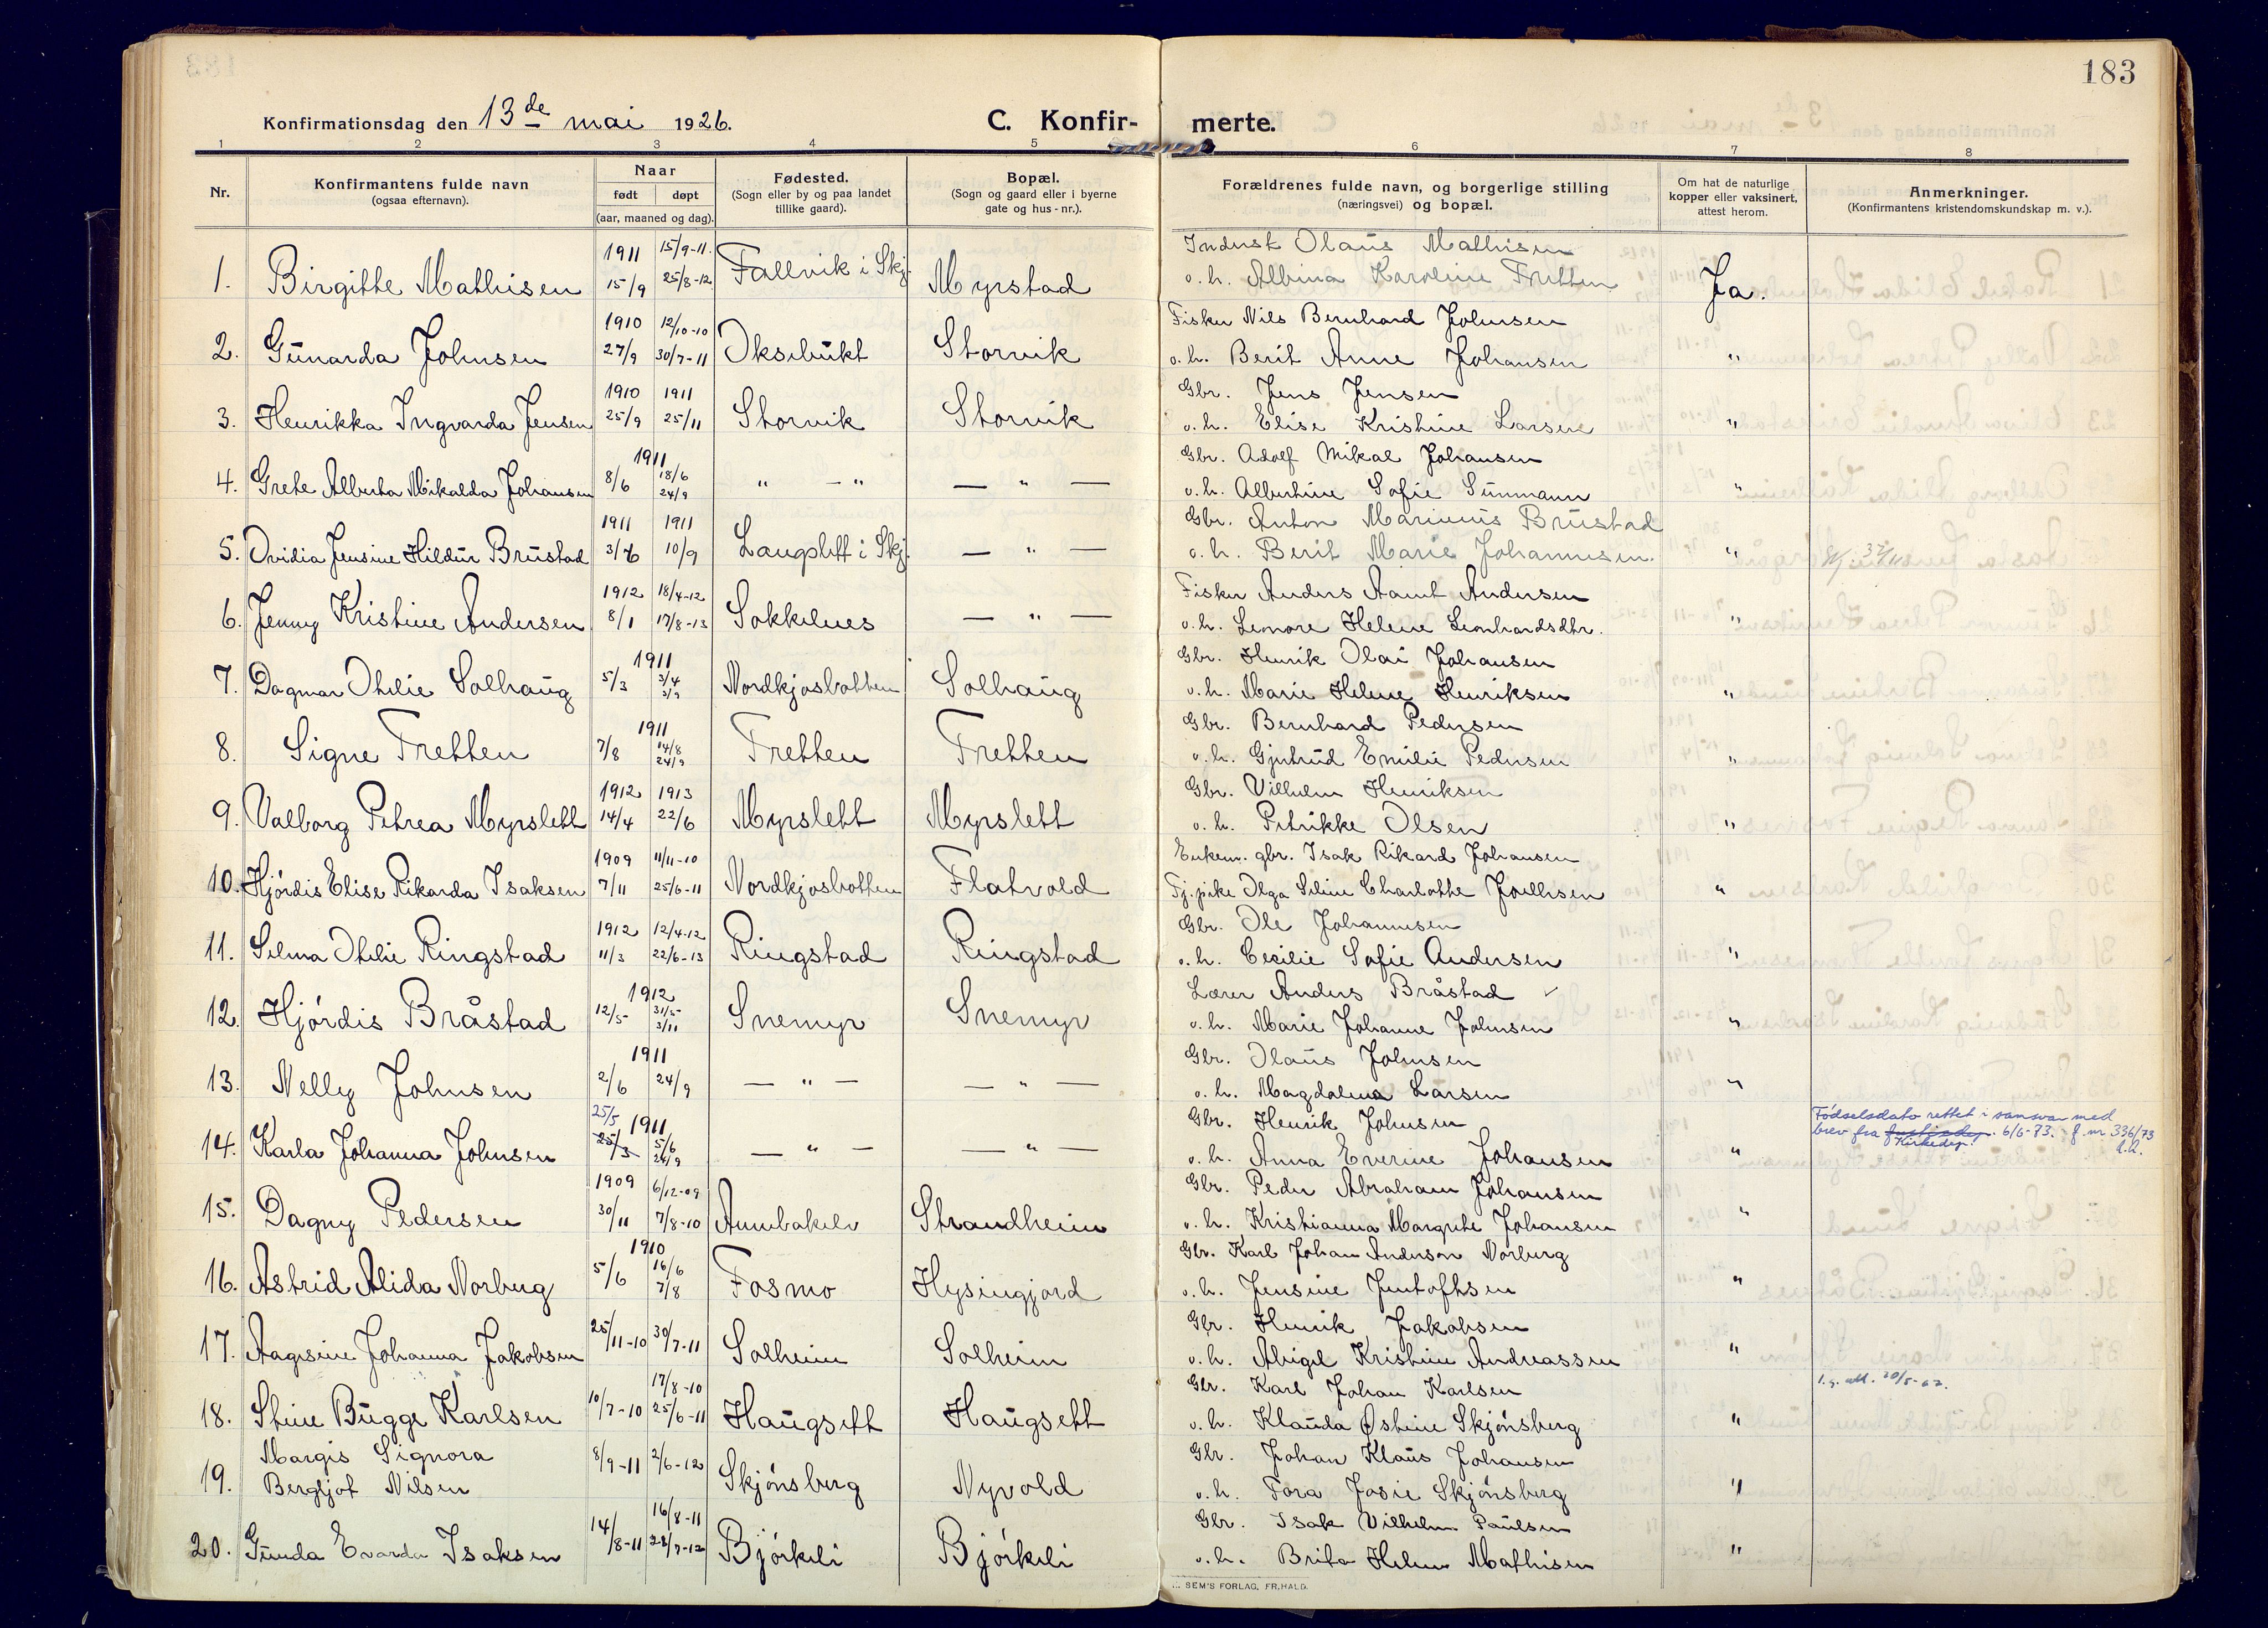 183
Konfirmationsdag den 13de mai 1926. C. Konfir- merte.
1 2 3 4 5 6 7 8
Nr. Konfirmantens fulde navn (ogsaa efternavn). Naar født døpt (aar, maaned og dag). Fødested. (Sogn eller by og paa landet tillike gaard). Bopæl. (Sogn og gaard eller i byerne gate og hus-nr.). Forældrenes fulde navn, og borgerlige stilling (næringsvei) og bopæl. Om hat de naturlige kopper eller vaksinert, attest herom. Anmerkninger. (Konfirmantens kristendomskundskap m. v.).
1911 15/9-11. Indust Olaus Mathisen
1. Birgitte Mathisen 15/9 25/8-12 Fallvik i Skj. Myrstad v.h. Albina Karoline Fretten Ja.
1910 12/10-10 Fisker Nils Bernhard Johnsen
2. Gunarda Johnsen 27/9 30/7-11 Oksebukt Storvik v.h. Berit Anne Johansen "
1910 1911 Gbr. Jens Jensen
3. Henrikka Ingvarda Jensen 25/9 25/11 Storvik Storvik v.h. Elise Kristine Larsen "
1911 18/6 Gbr. Adolf Mikal Johansen
4. Grete Alberta Mikalda Johansen 8/6 24/9 " — " — " — v.h. Albertine Sofie Sunmann "
1911 1911 Gbr. Anton Marinius Brustad
5. Ovidia Jensine Hildur Brustad 3/6 10/9 Langslett i Skj. — " — v.h. Berit Marie Johannesen. "
1912 18/4-12 Fisker Anders Aamt Andersen
6. Jenny Kristine Andersen 8/1 17/8-13 Sokkelnes — " — v.h. Lenore Helene Leonhardsdtr. "
1911 3/4 Gbr. Henrik Olai Johansen
7. Dagmar Othilie Solhaug 5/3 3/9 Nordkjosbotten Solhaug v.h. Marie Helene Henriksen "
1911 14/8 Gbr. Bernhard Pedersen
8. Signe Fretten 7/8 24/9 Fretten Fretten v.h. Gjertrud Emilie Pedersen "
1912 1913 Gbr. Vilhelm Henriksen
9. Valborg Petrea Myrslett 14/4 22/6 Myrslett Myrslett v.h. Petrikke Olsen "
1909 11/11-10 Enkem. gbr. Isak Rikard Johansen
10. Hjördis Elise Rikarda Isaksen 7/11 25/6-11 Nordkjosbotten Flatvold Tj.pike Olga Seline Charlotte Joellsen "
1912 12/4-12 Gbr. Ole Johannesen
11. Selma Othilie Ringstad 11/3 22/6-13 Ringstad Ringstad v.h. Cecilie Sofie Andersen "
1912 31/5 Lærer Anders Bråstad ✓
12. Hjördis Bråstad 12/5 3/11 Snemyr Snemyr v.h. Marie Johanne Johnsen "
1911 Gbr. Olaus Johnsen
13. Nelly Johnsen 2/6 24/9 — " — — " — v.h. Magdalena Larsen "
25/5 1911 5/6 Gbr. Henrik Johnsen Fødselsdato rettet i samsvar med
14. Karla Johanna Johnsen 25/3 24/9 — " — — " — v.h. Anna Everine Johansen " brev fra Justisdep. Kirkedep. 6/6-73. J.nr 336/73
1909 6/12-09 Gbr. Peder Abraham Johansen
15. Dagny Pedersen 30/11 7/8-10 Annbakelv Strandheim v.h. Kristianna Margrete Johansen "
1910 16/6 Gbr. Karl Johan Anderson Norberg
16. Astrid Alida Norberg 5/6 7/8 Fosmo Hysingjord v.h. Jensine Jentoftsen "
Gbr. Henrik Jakobsen
17. Aagesine Johanna Jakobsen 25/11-10 30/7-11 Solheim Solheim v.h. Abigel Kristine Andreassen "
17/8-10 Gbr. Karl Johan Karlsen
18. Stine Bugge Karlsen 10/7-10 25/6-11 Haugsett Haugsett v.h. Klauda Østine Skjönsberg "
Margis Signora Gbr. Johan Klaus Johansen
19. Bergljot Nilsen 8/9-11 2/6-12 Skjönsberg Nyvold v.h. Tora Josie Skjönsberg "
16/8-11 Gbr. Isak Vilhelm Paulsen
20. Gunda Evarda Isaksen 14/8-11 28/7-12 Björkeli Björkeli v.h. Brita Helene Mathisen "
SEM'S FORLAG, FR.HALD.